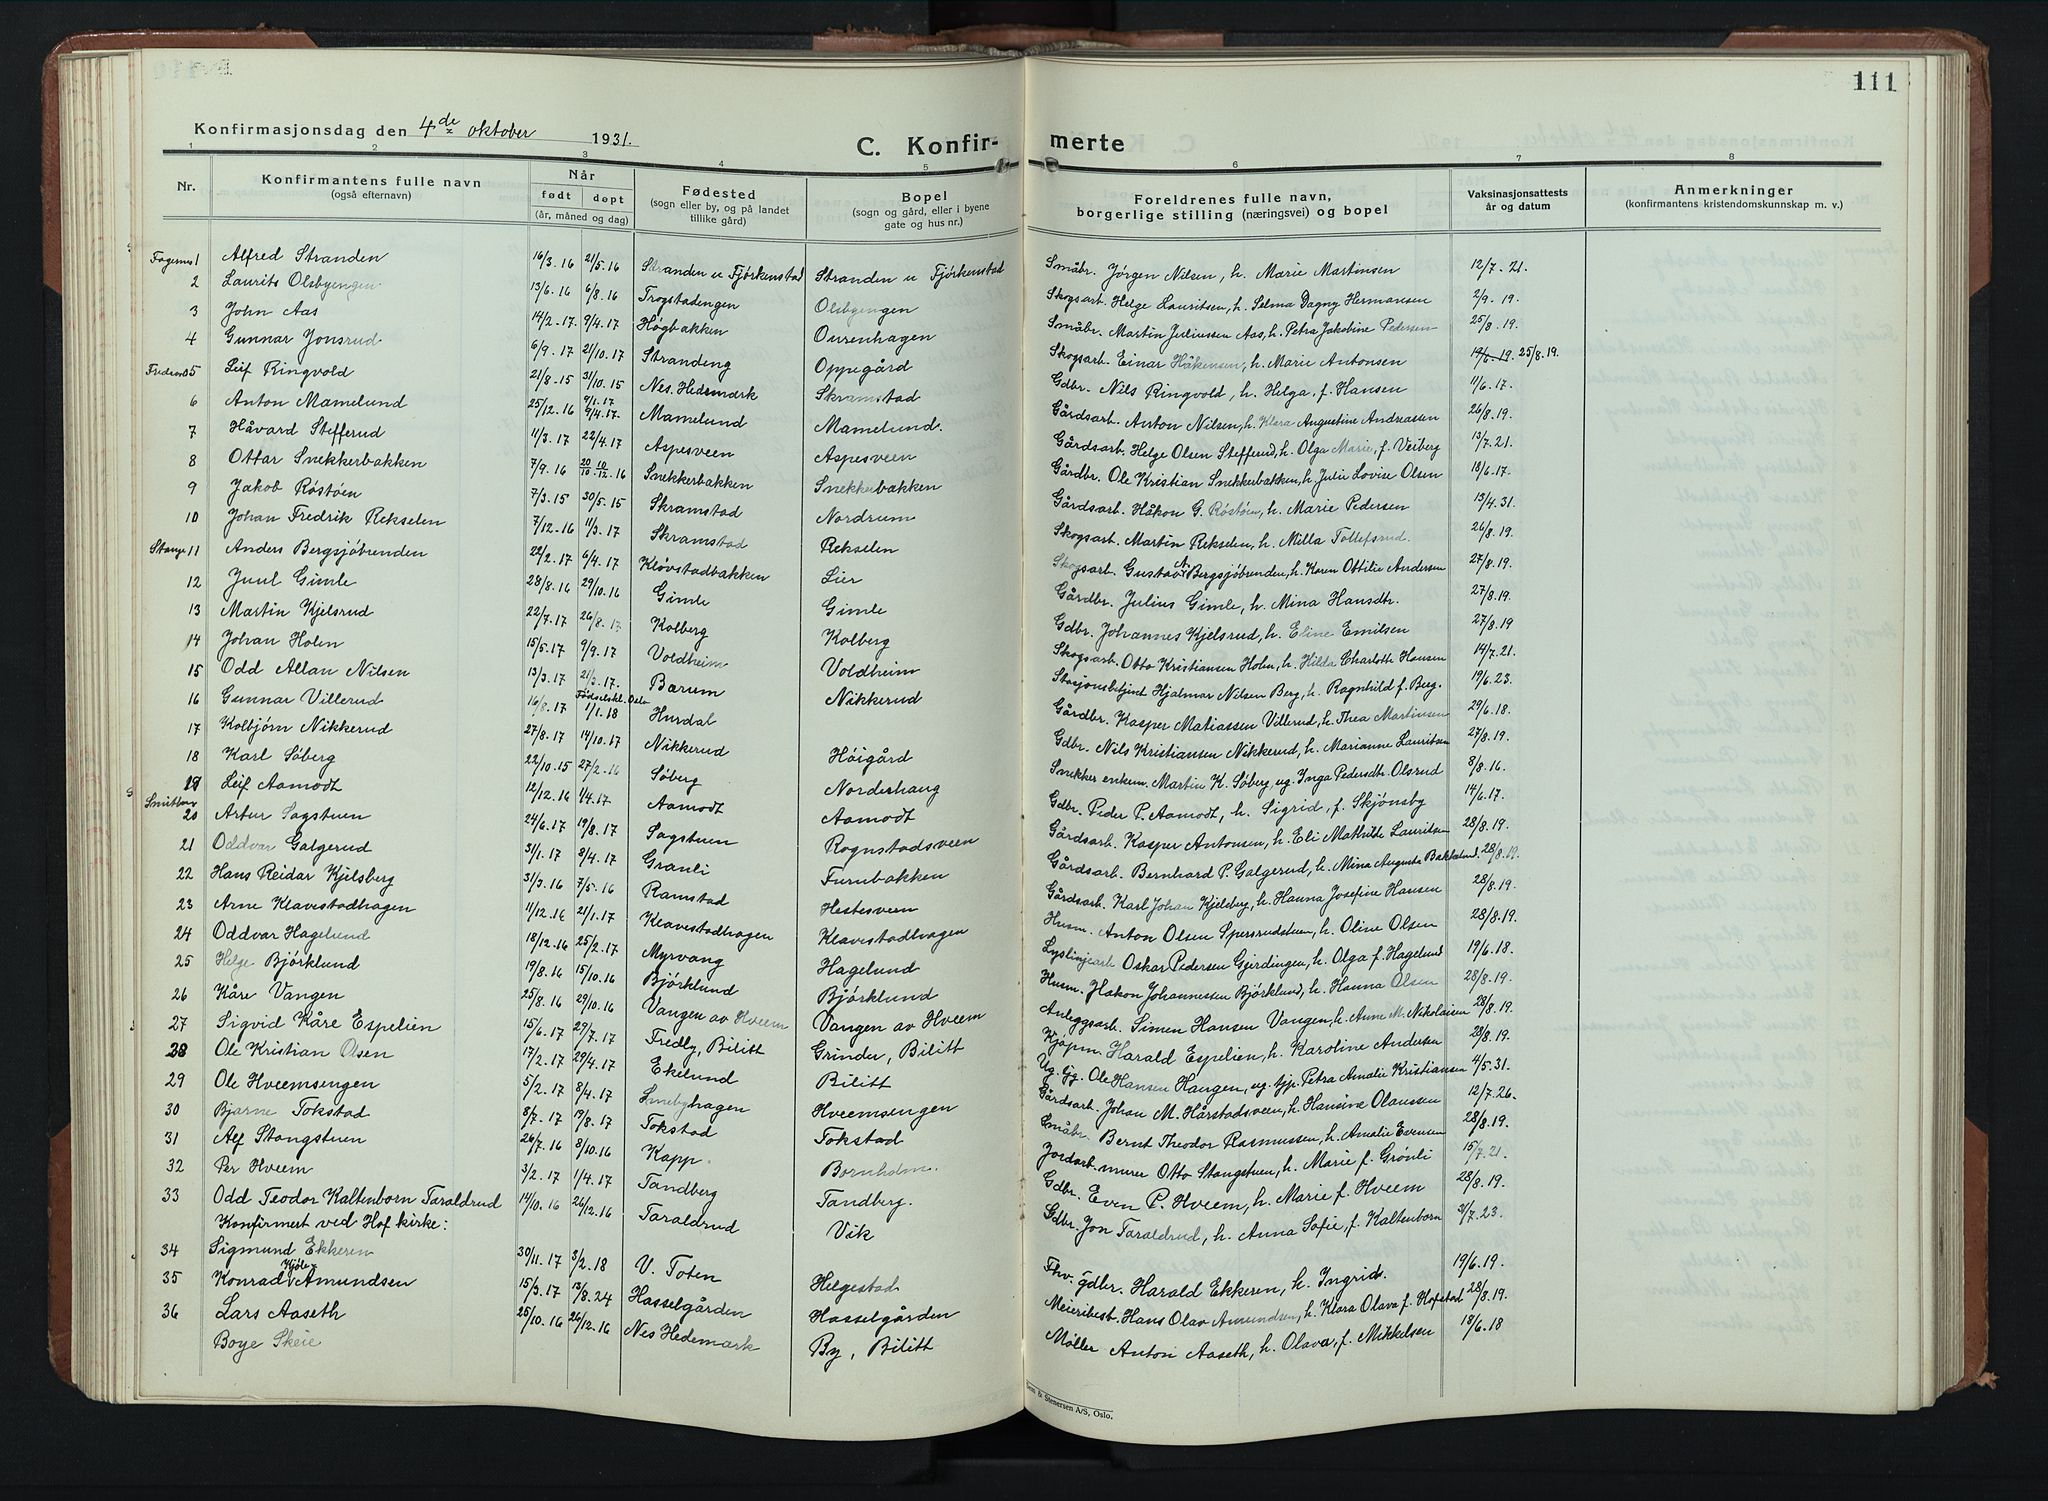 111
Konfirmasjonsdag den 4de oktober 1931.
C. Konfir- merte
1 2 3 4 5 6 7 8
Nr. Konfirmantens fulle navn (også efternavn) Når født døpt (år, måned og dag) Fødested (sogn eller by, og på landet tillike gård) Bopel (sogn og gård, eller i byene gate og hus nr.) Foreldrenes fulle navn, borgerlige stilling (næringsvei) og bopel Vaksinasjonsattests år og datum Anmerkninger (konfirmantens kristendomskunnskap m. v.)
Fagernes 1 Alfred Stranden 16/3.16 21/5.16 Stranden u Fjörkenstad Stranden u Fjörkenstad Småbr. Jörgen Nilsen, h. Marie Martinsen 12/7.21.
2 Laurits Olsbyengen 13/6.16 6/8.16 Trogstadengen Olsbyengen Skogsarb. Helge Lauritsen, h. Selma Dagny Hermansen 2/9.19.
3 John Aas 14/2.17. 9/4.17 Högbakken Ourenhagen Småbr. Martin Juliussen Aas, h. Petra Jakobine Pedersen 25/8.19.
4 Gunnar Jonsrud 6/9.17 21/10.17 Strandeng Oppegård Skogsarb. Einar Håkensen, h. Marie Antonsen 19/6.19. 25/8.19.
5 Leif Ringvold 21/8.15 31/10.15 Nes. Hedemark Skramstad Gdbr. Nils Ringvold, h. Helga, f. Hansen 11/6.17.
6 Anton Mamelund 25/12.16 9/1.17 9/4.17. Mamelund Mamelund. Gårdsarb. Anton Nilsen, h. Klara Augustine Andreassen 26/8.19.
7 Håvard Stefferud 11/3.17 22/4.17 Aspesveen Aspesveen Gårdsarb. Helge Olsen Stefferud, h. Olga Marie, f. Veiberg 13/7.21.
8 Ottar Snekkerbakken 7/9.16 20/10 10/12.16 Snekkerbakken Snekkerbakken Gårdbr. Ole Kristian Snekkerbakken, h. Julie Lovise Olsen 18/6.17.
9 Jakob Röstöen 7/3.15 30/5.15 Skramstad Nordrum Gårdsarb. Håkon G. Röstöen, h. Marie Pedersen 13/4.31.
10 Johan Fredrik Rekselen 7/12.16 11/3.17 Skramstad Rekselen Skogsarb. Martin Rekselen, h. Milla Tollefsrud. 26/8.19.
Stange 11 Anders Bergsjöbrenden 22/2.17 6/4.17 Klövstadbakken Lier Skogsarb. Gustav A. Bergsjöbrenden, h. Karen Ottilie Andersen 27/8.19.
12 Juul Gimle 28/8.16 29/10.16 Gimle Gimle Gårdbr. Julius Gimle, h. Mina Hansdtr. 27/8.19.
13 Martin Kjelsrud 22/7.17 26/8.17 Kolberg Kolberg Gdbr. Johannes Kjelsrud, h. Eline Emilsen 27/8.19
14 Johan Holen 15/5.17 9/9.17 Voldheim Voldheim Skogsarb. Otto Kristiansen Holen, h. Hilda Charlotte Hansen 14/7.21.
15 Odd Allan Nilsen 13/3.17 21/3.17. Fødselskl. Oslo Bærum Nikkerud Stasjonsbetjent Hjalmar Nilsen Berg, h. Ragnhild f. Berg. 19/6.23.
16 Gunnar Villerud 16/8.17 1/1.18 Hurdal Gårdbr. Kasper Matiassen Villerud, h. Thea Martinsen 29/6.18.
17 Kolbjörn Nikkerud 27/8.17 14/10.17 Nikkerud Höigård Gdbr. Nils Kristiansen Nikkerud, h. Marianne Lauritsen 27/8.19.
18 Karl Söberg 22/10.15 27/2.16 Söberg Norderhaug Snekker enkem. Martin K. Söberg og Inga Pedersdtr. Olsrud 8/8.16.
19 Leif Aamodt 12/12.16 1/4.17 Aamodt Aamodt Gdbr. Peder P. Aamodt, h. Sigrid, f. Skjönsby 14/6.17.
20 Artur Sagstuen 24/6.17 19/8.17 Sagstuen Rognstadsveen Gårdsarb. Kasper Antonsen, h. Eli Mathilde Lauritsen 28/8.19.
21 Oddvar Galgerud 31/1.17 8/4.17 Granli Furubakken Gårdsarb. Bernhard P. Galgerud, h. Mina Augusta Bakkelund. 28/8.19.
22 Hans Reidar Kjelsberg 31/3.16 7/5.16 Ramstad Hestesveen Gårdsarb. Karl Johan Kjelsberg, h. Hanna Josefine Hansen 28/8.19.
23 Arne Klavestadhagen 11/12.16 21/1.17 Klavestadhagen Klavestadhagen Husm. Anton Olsen Spersrudstuen, h. Oline Olsen 28/8.19.
24 Oddvar Hagelund 18/12.16 25/2.17 Myrvang Hagelund Lyslinjearb Oskar Pedersen Gjerdingen, h. Olga f. Hagelund 19/6.18.
25 Helge Björklund 19/8.16 15/10.16 Björklund Björklund Husm. Håkon Johannessen Björklund, h. Hanna Olsen 28/8.19.
26 Kåre Vangen 25/8.16 29/10.16 Vangen av Hveem Vangen av Hveem Anleggsarb. Simen Hansen Vangen, h. Anne M. Nikolaisen 28/8.19.
27 Sigvid Kåre Espelien 15/6.17 29/7.17 Fredly, Bilitt Grinder, Bilitt Kjöpm. Harald Espelien, h. Karoline Andersen 28/8.19.
28 Ole Kristian Olsen 17/2.17 29/4.17 Ekelund Bilitt Ug. Gg. Ole Hansen Haugen, ug. tjp. Petra Amalie Kristiansen 4/5.31.
29 Ole Hveemsengen 5/2.17 8/4.17 Smebyhagen Hveemsengen Gårdsarb. Johan M. Hårstadsveen, h. Hansine Olaussen 12/7.26.
30 Bjarne Tokstad 8/7.17 19/8.17 Tokstad Tokstad Småbr. Bernt Theodor Rasmussen, h. Amalie Evensen 28/8.19.
31 Alf Stangstuen 26/7.16 8/10.16 Kapp. Bornholm. Jordarb. murer Otto Stangstuen, h. Marie f. Grönli 15/7.21.
32 Per Hveem 3/2.17 1/4.17 Tandberg Tandberg. Gdbr. Even P. Hveem, h. Marie f. Hveem 28/8.19.
33 Odd Teodor Kaltenborn Taraldrud 14/10.16 26/12.16 Taraldrud Vik Gdbr. Jon Taraldrud, h. Anna Sofie, f. Kaltenborn 31/7.23.
Konfirmert ved Hof kirke:
34 Sigmund Ekkeren 30/11.17 3/2.18 V. Toten Helgestad Fhv. gdbr. Harald Ekkeren, h. Ingrid. 19/6.19.
35 Konrad Kjöle Amundsen 15/3.17 13/8.24 Hasselgården Hasselgården Meieribest. Hans Olav Amundsen, h. Klara Olava f. Hofstad 28/8.19.
36 Lars Aaseth 25/10.16 26/12.16 Nes Hedemark By, Bilitt Möller Anton Aaseth, h. Olava, f. Mikkelsen 18/6.18
Boye Skeie
Stenersen A/S, Oslo.